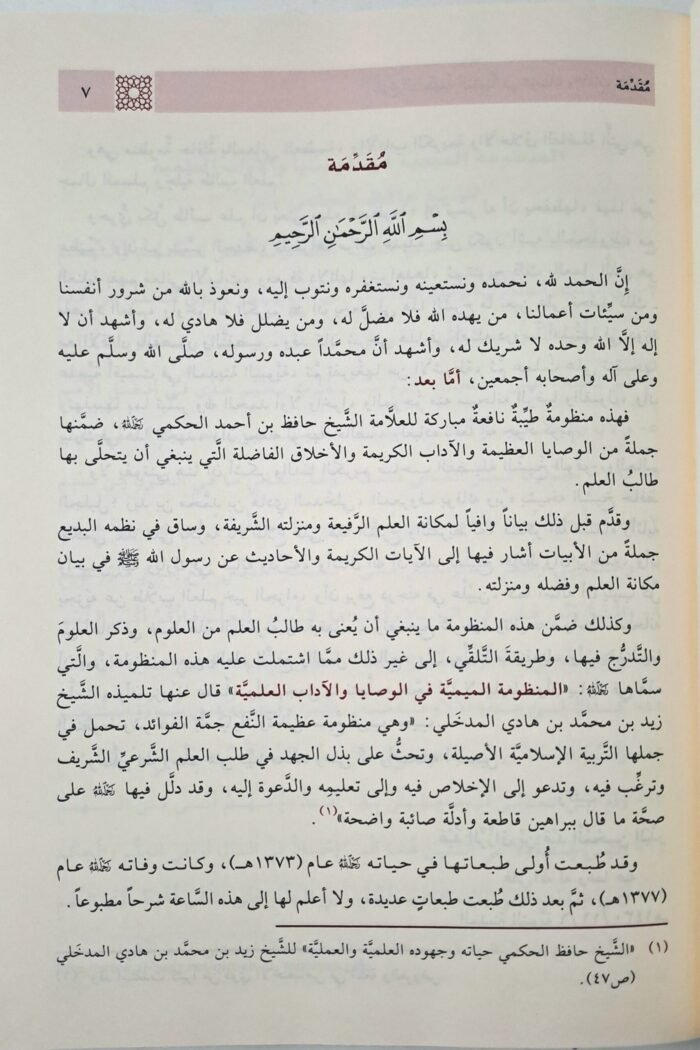 مُقَدِّمَة ٧
مُقَدِّمَة
بِسْمِ ٱللَّهِ ٱلرَّحْمَٰنِ ٱلرَّحِيمِ
إِنَّ الحمد لله، نحمده ونستعينه ونستغفره ونتوب إليه، ونعوذ بالله من شرور أنفسنا
ومن سيِّئات أعمالنا، من يهده الله فلا مضلَّ له، ومن يضلل فلا هادي له، وأشهد أن لا
إله إلَّا الله وحده لا شريك له، وأشهد أنَّ محمَّداً عبده ورسوله، صلَّى الله وسلَّم عليه
وعلى آله وأصحابه أجمعين، أمَّا بعد:
فهذه منظومةٌ طيِّبةٌ نافعةٌ مباركة للعلاَّمة الشَّيخ حافظ بن أحمد الحكمي رَحِمَهُ اللهُ، ضمَّنها
جملةً من الوصايا العظيمة والآداب الكريمة والأخلاق الفاضلة الَّتي ينبغي أن يتحلَّى بها
طالبُ العلم.
وقدَّم قبل ذلك بياناً وافياً لمكانة العلم الرَّفيعة ومنزلته الشَّريفة، وساق في نظمه البديع
جملةً من الأبيات أشار فيها إلى الآيات الكريمة والأحاديث عن رسول الله ﷺ في بيان
مكانة العلم وفضله ومنزلته.
وكذلك ضمَّن هذه المنظومة ما ينبغي أن يُعنى به طالبُ العلم من العلوم، وذكر العلومَ
والتَّدرُّج فيها، وطريقةَ التَّلقِّي، إلى غير ذلك ممَّا اشتملت عليه هذه المنظومة، والَّتي
سمَّاها رَحِمَهُ اللهُ: «المنظومة الميميَّة في الوصايا والآداب العلميَّة» قال عنها تلميذه الشَّيخ
زيد بن محمَّد بن هادي المدخَلي: «وهي منظومة عظيمة النَّفع جمَّة الفوائد، تحمل في
جملها التَّربية الإسلاميَّة الأصيلة، وتحثُّ على بذل الجهد في طلب العلم الشَّرعيِّ الشَّريف
وترغِّب فيه، وتدعو إلى الإخلاص فيه وإلى تعليمِه والدَّعوة إليه، وقد دلَّل فيها رَحِمَهُ اللهُ على
صحَّة ما قال ببراهين قاطعة وأدلَّة صائبة واضحة»(١).
وقد طُبعت أُولى طبعاتها في حياته رَحِمَهُ اللهُ عام (١٣٧٣هـ)، وكانت وفاته رَحِمَهُ اللهُ عام
(١٣٧٧هـ)، ثمَّ بعد ذلك طُبعت طبعاتٍ عديدة، ولا أعلم لها إلى هذه السَّاعة شرحاً مطبوعاً.
(١) «الشَّيخ حافظ الحكمي حياته وجهوده العلميَّة والعمليَّة» للشَّيخ زيد بن محمَّد بن هادي المدخَلي
(ص٤٧).